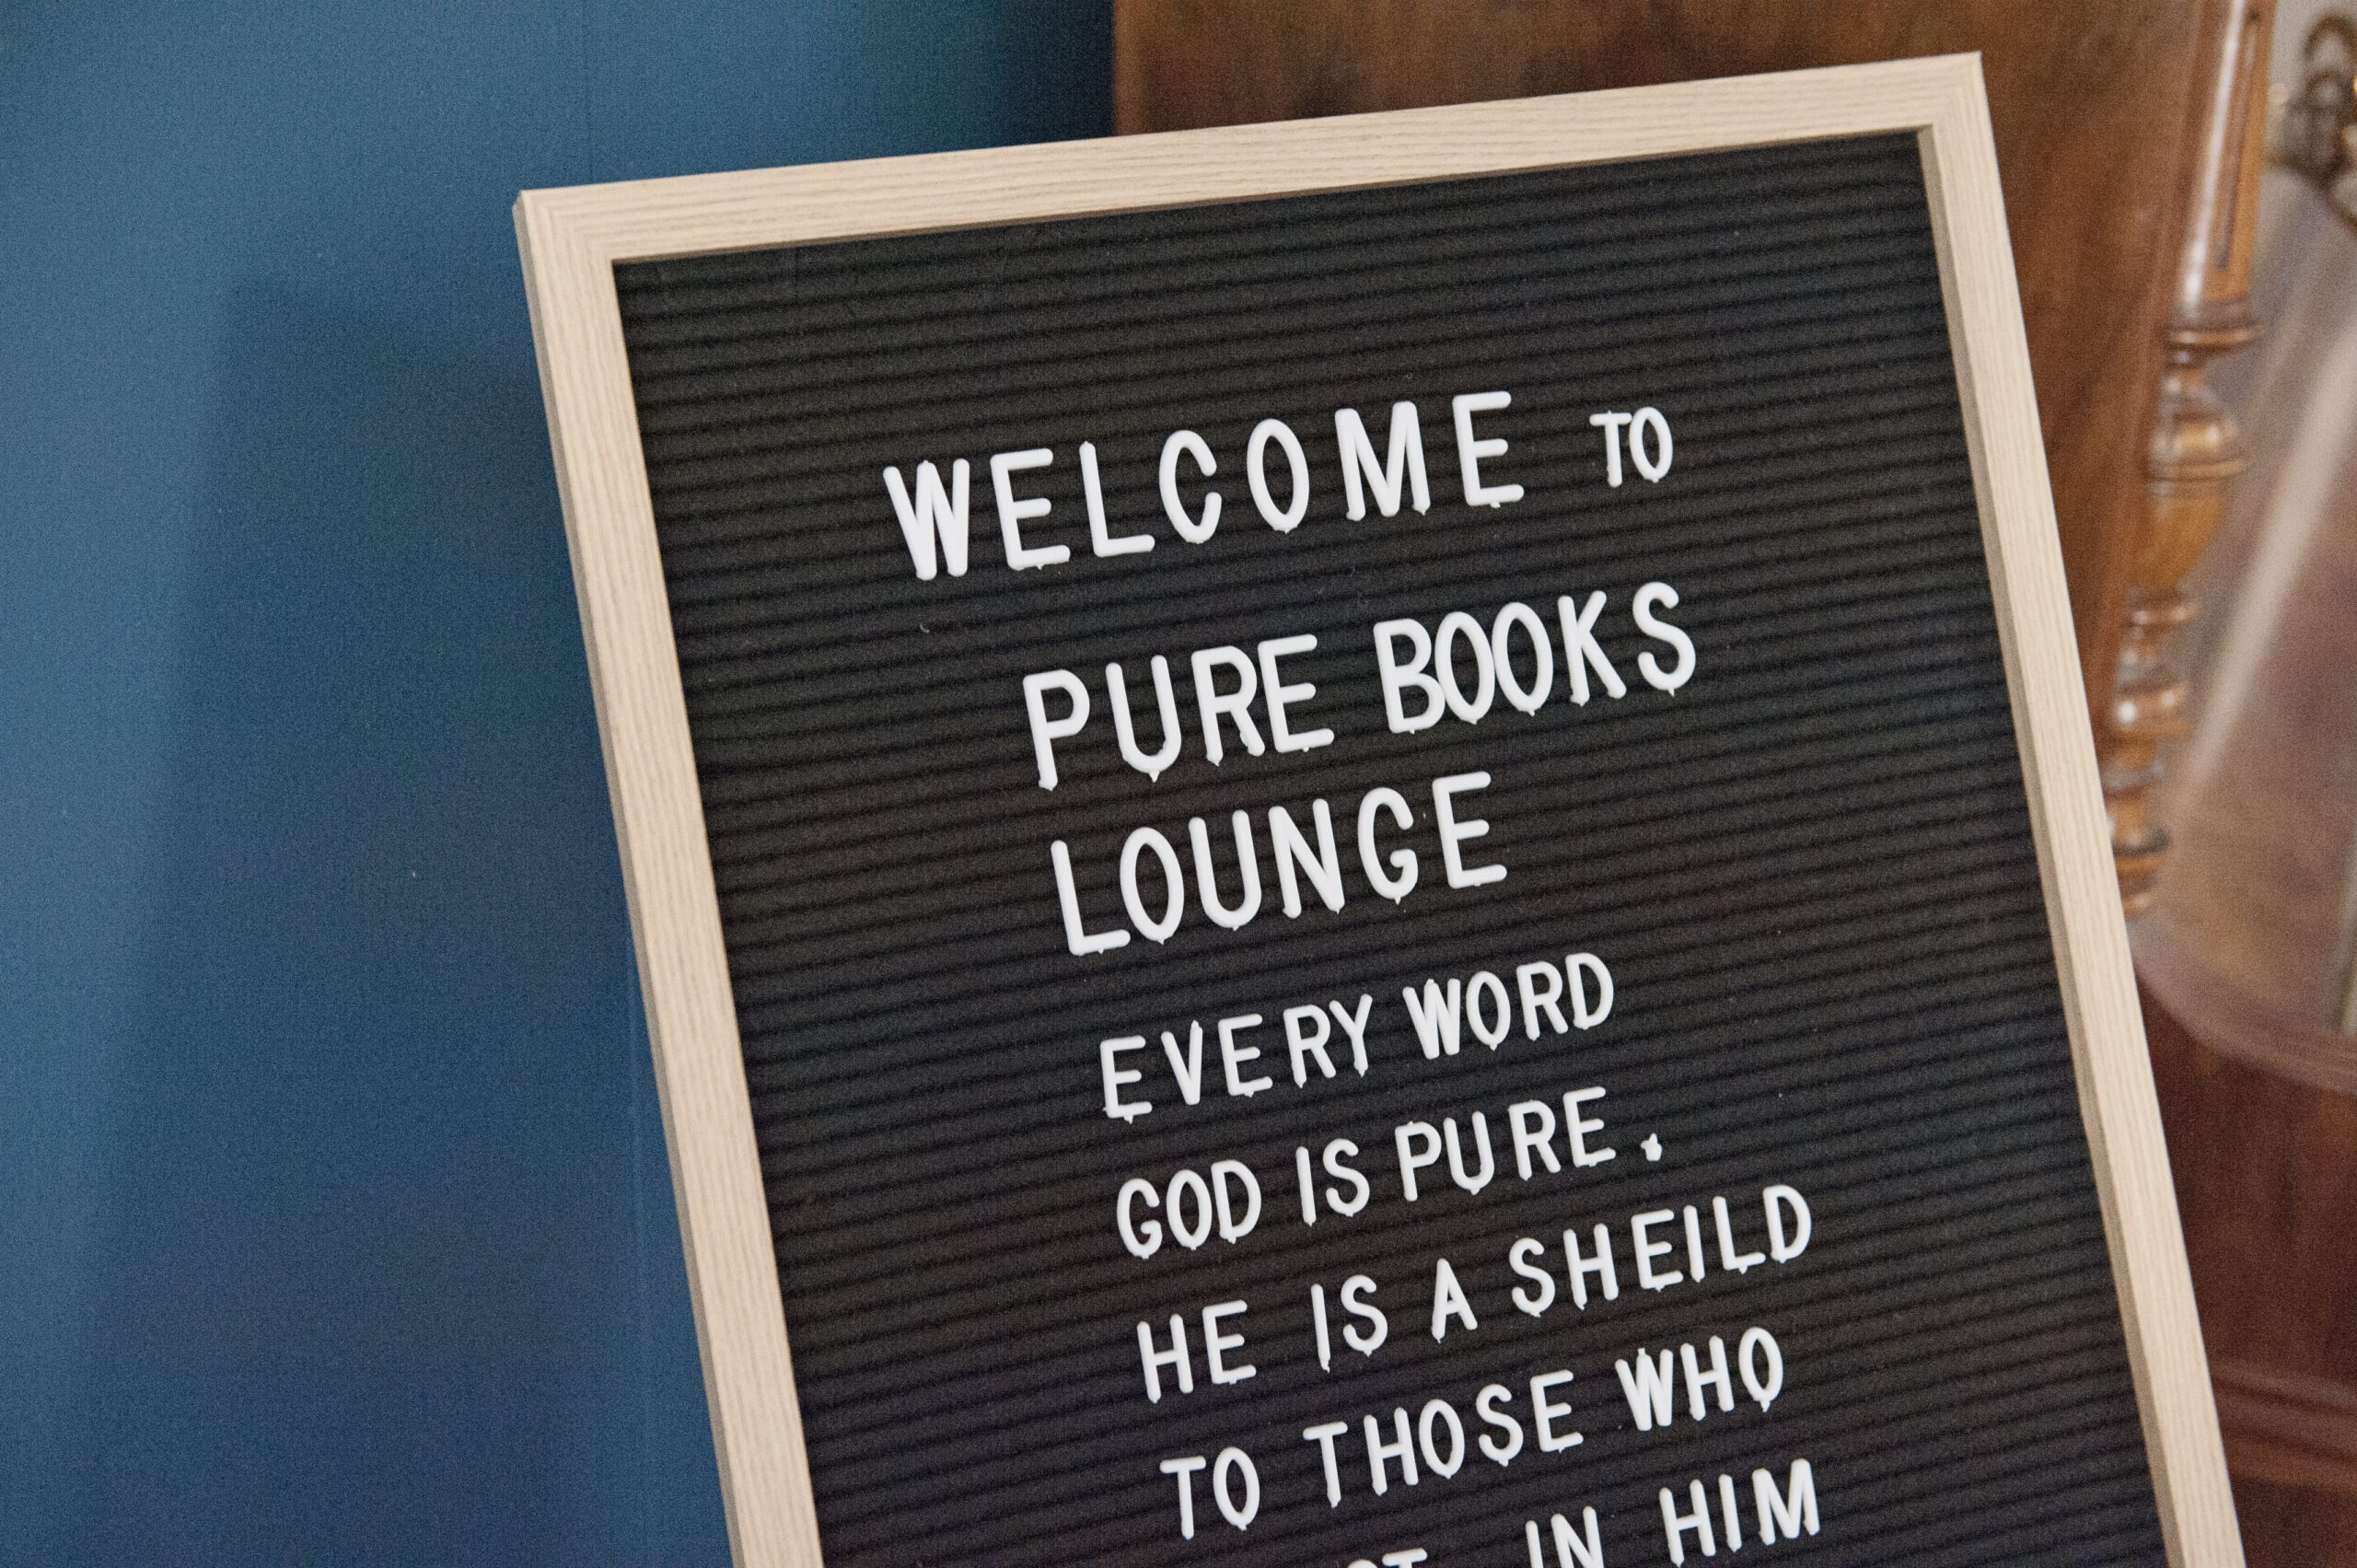 WELCOME TO
PURE BOOKS
LOUNGE
EVERY WORD
GOD IS PURE.
HE IS A SHEILD
TO THOSE WHO
IN HIM